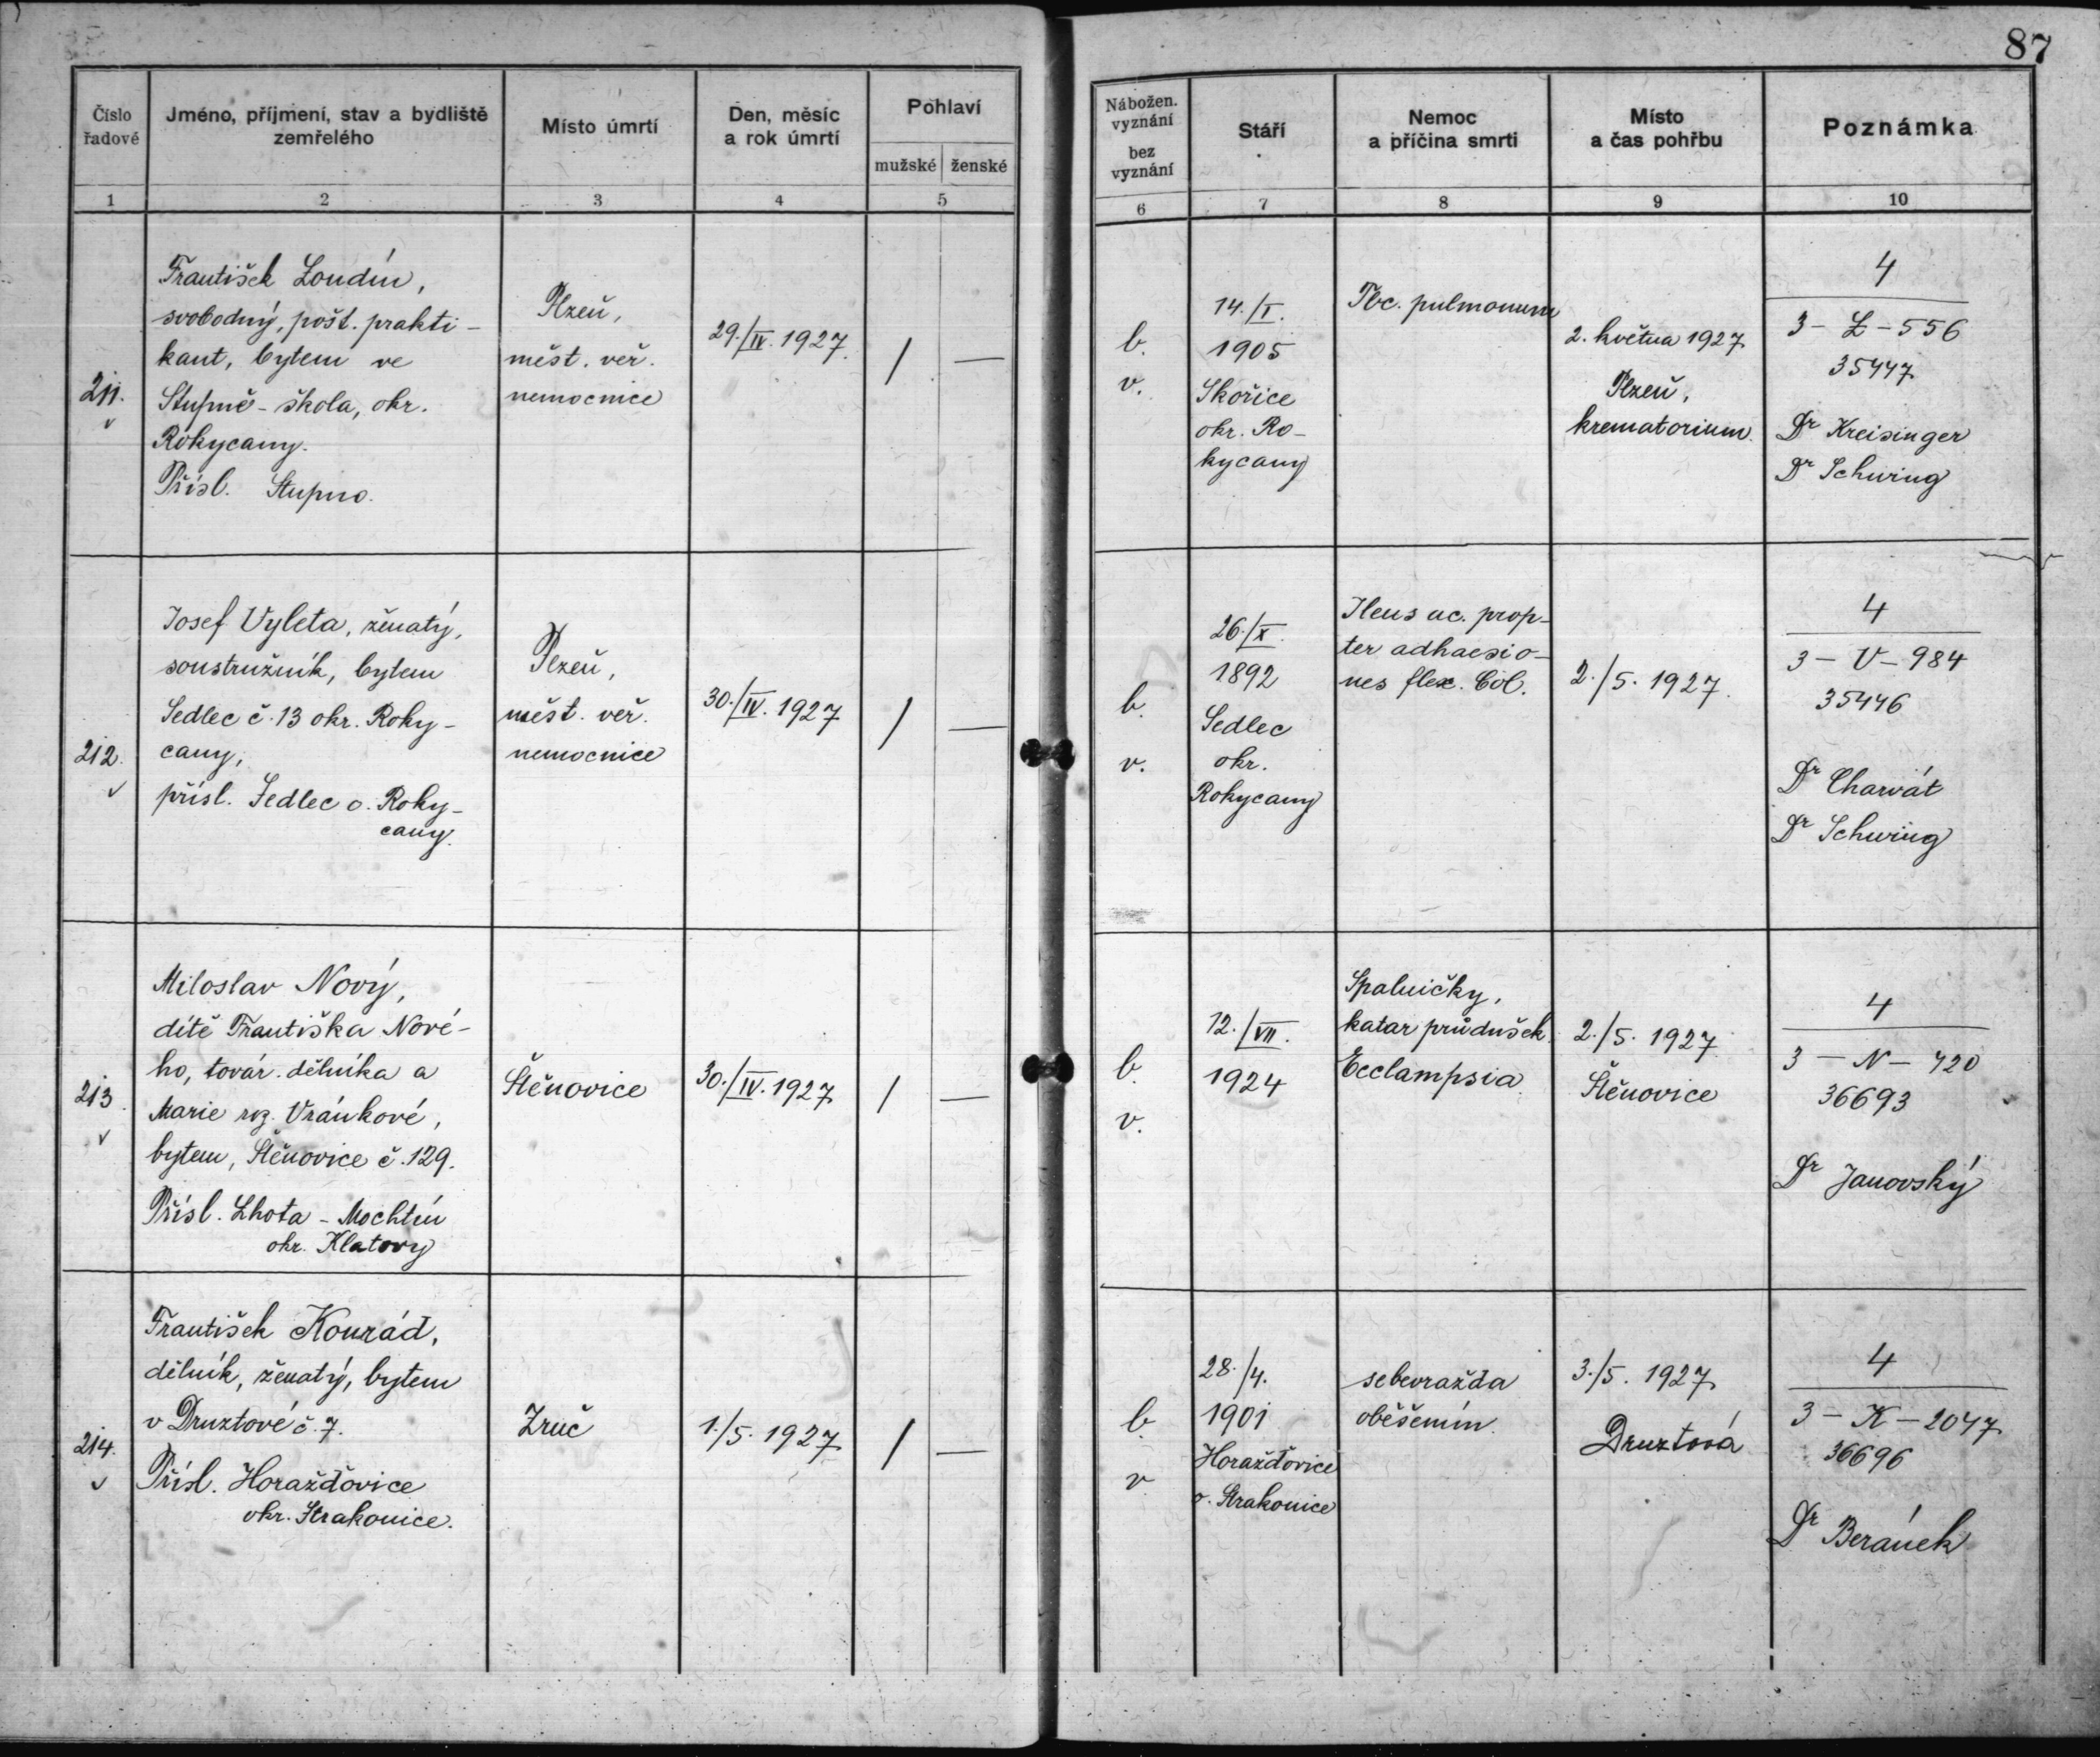 87
Číslo řadové
Jméno, příjmení, stav a bydliště zemřelého
Místo úmrtí
Den, měsíc a rok úmrtí
Pohlaví
mužské ženské
Nábožen. vyznání
bez vyznání
Stáří
Nemoc a příčina smrti
Místo a čas pohřbu
Poznámka
1 2 3 4 5 6 7 8 9 10
211.
František Loudín,
svobodný, pošt. prakti-
kant, bytem ve
Stupně - škola, okr.
Rokycany.
Přísl. Stupno.
Plzeň,
měst. veř.
nemocnice
29./IV. 1927.
/ —
b.
v.
14./I.
1905
Skořice
okr. Ro-
kycany
Tbc. pulmonum
2. května 1927
Plzeň,
krematorium.
4
3 - L - 556
35447
Dr Kreisinger
Dr Schwing
212.
Josef Vyleta, ženatý,
soustružník, bytem
Sedlec č. 13 okr. Roky-
cany,
přísl. Sedlec o. Roky-
cany.
Plzeň,
měst. veř.
nemocnice
30./IV. 1927
/ —
b.
v.
26./X.
1892
Sedlec
okr.
Rokycany
Ileus ac. prop-
ter adhaesio-
nes flex. Col.
2./5. 1927.
4
3 - V - 984
35446
Dr Charvát
Dr Schwing
213.
Miloslav Nový,
dítě Františka Nové-
ho, továr. dělníka a
Marie roz. Vránkové,
bytem, Štěnovice č. 129.
Přísl. Lhota - Mochtín
okr. Klatovy
Štěnovice
30./IV. 1927
/ —
b.
v.
12./VII.
1924
Spalničky,
katar průdušek.
Ecclampsia
2./5. 1927
Štěnovice
4
3 - N - 420
36693
Dr Janovský
214.
František Konrád,
dělník, ženatý, bytem
v Druztové č. 7.
Přísl. Horažďovice
okr. Strakonice.
Zruč
1./5. 1927
/ —
b
v
28./4.
1901
Horažďovice
o. Strakonice
sebevražda
oběšením.
3./5. 1927
Druztová
4
3 - K - 2047
36696
Dr Beránek